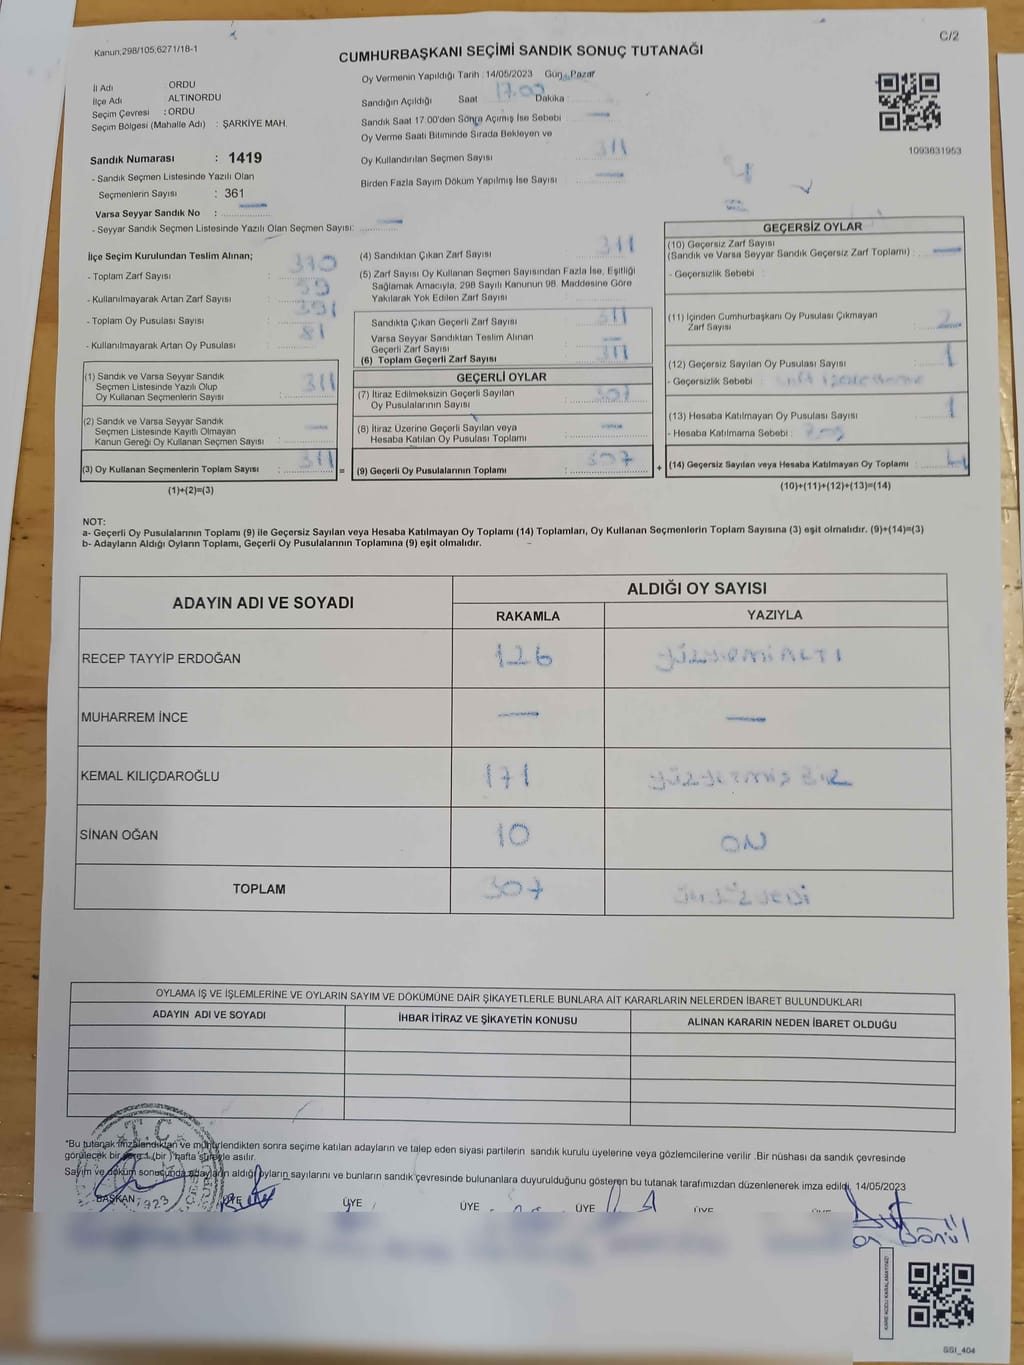 C/2
Kanun,298/105,6271/18-1
CUMHURBAŞKANI SEÇİMİ SANDIK SONUÇ TUTANAĞI
İl Adı : ORDU
İlçe Adı ALTINORDU
Seçim Çevresi : ORDU
Seçim Bölgesi (Mahalle Adı) : ŞARKİYE MAH.
Oy Vermenin Yapıldığı Tarih :14/05/2023 Gün: Pazar
Sandığın Açıldığı Saat 17.00 Dakika :
Sandık Saat 17.00'den Sonra Açılmış İse Sebebi —
Oy Verme Saati Bitiminde Sırada Bekleyen ve
Oy Kullandırılan Seçmen Sayısı 311
Birden Fazla Sayım Döküm Yapılmış İse Sayısı : —
1093631953
Sandık Numarası : 1419
- Sandık Seçmen Listesinde Yazılı Olan
Seçmenlerin Sayısı : 361
Varsa Seyyar Sandık No : —
- Seyyar Sandık Seçmen Listesinde Yazılı Olan Seçmen Sayısı: —
İlçe Seçim Kurulundan Teslim Alınan;
- Toplam Zarf Sayısı : 370
- Kullanılmayarak Artan Zarf Sayısı : 59
- Toplam Oy Pusulası Sayısı : 391
- Kullanılmayarak Artan Oy Pusulası : 81
(1) Sandık ve Varsa Seyyar Sandık
Seçmen Listesinde Yazılı Olup
Oy Kullanan Seçmenlerin Sayısı : 311
(2) Sandık ve Varsa Seyyar Sandık
Seçmen Listesinde Kayıtlı Olmayan
Kanun Gereği Oy Kullanan Seçmen Sayısı : —
(3) Oy Kullanan Seçmenlerin Toplam Sayısı : 311 =
(1)+(2)=(3)
(4) Sandıktan Çıkan Zarf Sayısı : 311
(5) Zarf Sayısı Oy Kullanan Seçmen Sayısından Fazla İse, Eşitliği
Sağlamak Amacıyla, 298 Sayılı Kanunun 98. Maddesine Göre
Yakılarak Yok Edilen Zarf Sayısı :
Sandıkta Çıkan Geçerli Zarf Sayısı : 311
Varsa Seyyar Sandıktan Teslim Alınan
Geçerli Zarf Sayısı : —
(6) Toplam Geçerli Zarf Sayısı : 311
GEÇERLİ OYLAR
(7) İtiraz Edilmeksizin Geçerli Sayılan
Oy Pusulalarının Sayısı : 307
(8) İtiraz Üzerine Geçerli Sayılan veya
Hesaba Katılan Oy Pusulası Toplamı : —
(9) Geçerli Oy Pusulalarının Toplamı : 307 +
GEÇERSİZ OYLAR
(10) Geçersiz Zarf Sayısı
(Sandık ve Varsa Seyyar Sandık Geçersiz Zarf Toplamı) : —
- Geçersizlik Sebebi :
(11) İçinden Cumhurbaşkanı Oy Pusulası Çıkmayan
Zarf Sayısı : 2
(12) Geçersiz Sayılan Oy Pusulası Sayısı : 1
- Geçersizlik Sebebi :
(13) Hesaba Katılmayan Oy Pusulası Sayısı : 1
- Hesaba Katılmama Sebebi :
(14) Geçersiz Sayılan veya Hesaba Katılmayan Oy Toplamı : 4
(10)+(11)+(12)+(13)=(14)
NOT:
a- Geçerli Oy Pusulalarının Toplamı (9) ile Geçersiz Sayılan veya Hesaba Katılmayan Oy Toplamı (14) Toplamları, Oy Kullanan Seçmenlerin Toplam Sayısına (3) eşit olmalıdır. (9)+(14)=(3)
b- Adayların Aldığı Oyların Toplamı, Geçerli Oy Pusulalarının Toplamına (9) eşit olmalıdır.
ADAYIN ADI VE SOYADI ALDIĞI OY SAYISI
RAKAMLA YAZIYLA
RECEP TAYYİP ERDOĞAN 126 YÜZYİRMİALTI
MUHARREM İNCE — —
KEMAL KILIÇDAROĞLU 171 YÜZYETMİŞ BİR
SİNAN OĞAN 10 ON
TOPLAM 307 ÜÇYÜZ YEDİ
OYLAMA İŞ VE İŞLEMLERİNE VE OYLARIN SAYIM VE DÖKÜMÜNE DAİR ŞİKAYETLERLE BUNLARA AİT KARARLARIN NELERDEN İBARET BULUNDUKLARI
ADAYIN ADI VE SOYADI İHBAR İTİRAZ VE ŞİKAYETİN KONUSU ALINAN KARARIN NEDEN İBARET OLDUĞU
T.C.
*Bu tutanak imzalandıktan ve mühürlendikten sonra seçime katılan adayların ve talep eden siyasi partilerin sandık kurulu üyelerine veya gözlemcilerine verilir .Bir nüshası da sandık çevresinde
görülecek bir yere 1 (bir ) hafta süreyle asılır.
Sayım ve döküm sonucunda adayların aldığı oyların sayılarını ve bunların sandık çevresinde bulunanlara duyurulduğunu gösteren bu tutanak tarafımızdan düzenlenerek imza edildi. 14/05/2023
BAŞKAN ÜYE ÜYE ÜYE ÜYE ÜYE
1923
KARE KODU KARALAMAYINIZ!
SSI_404